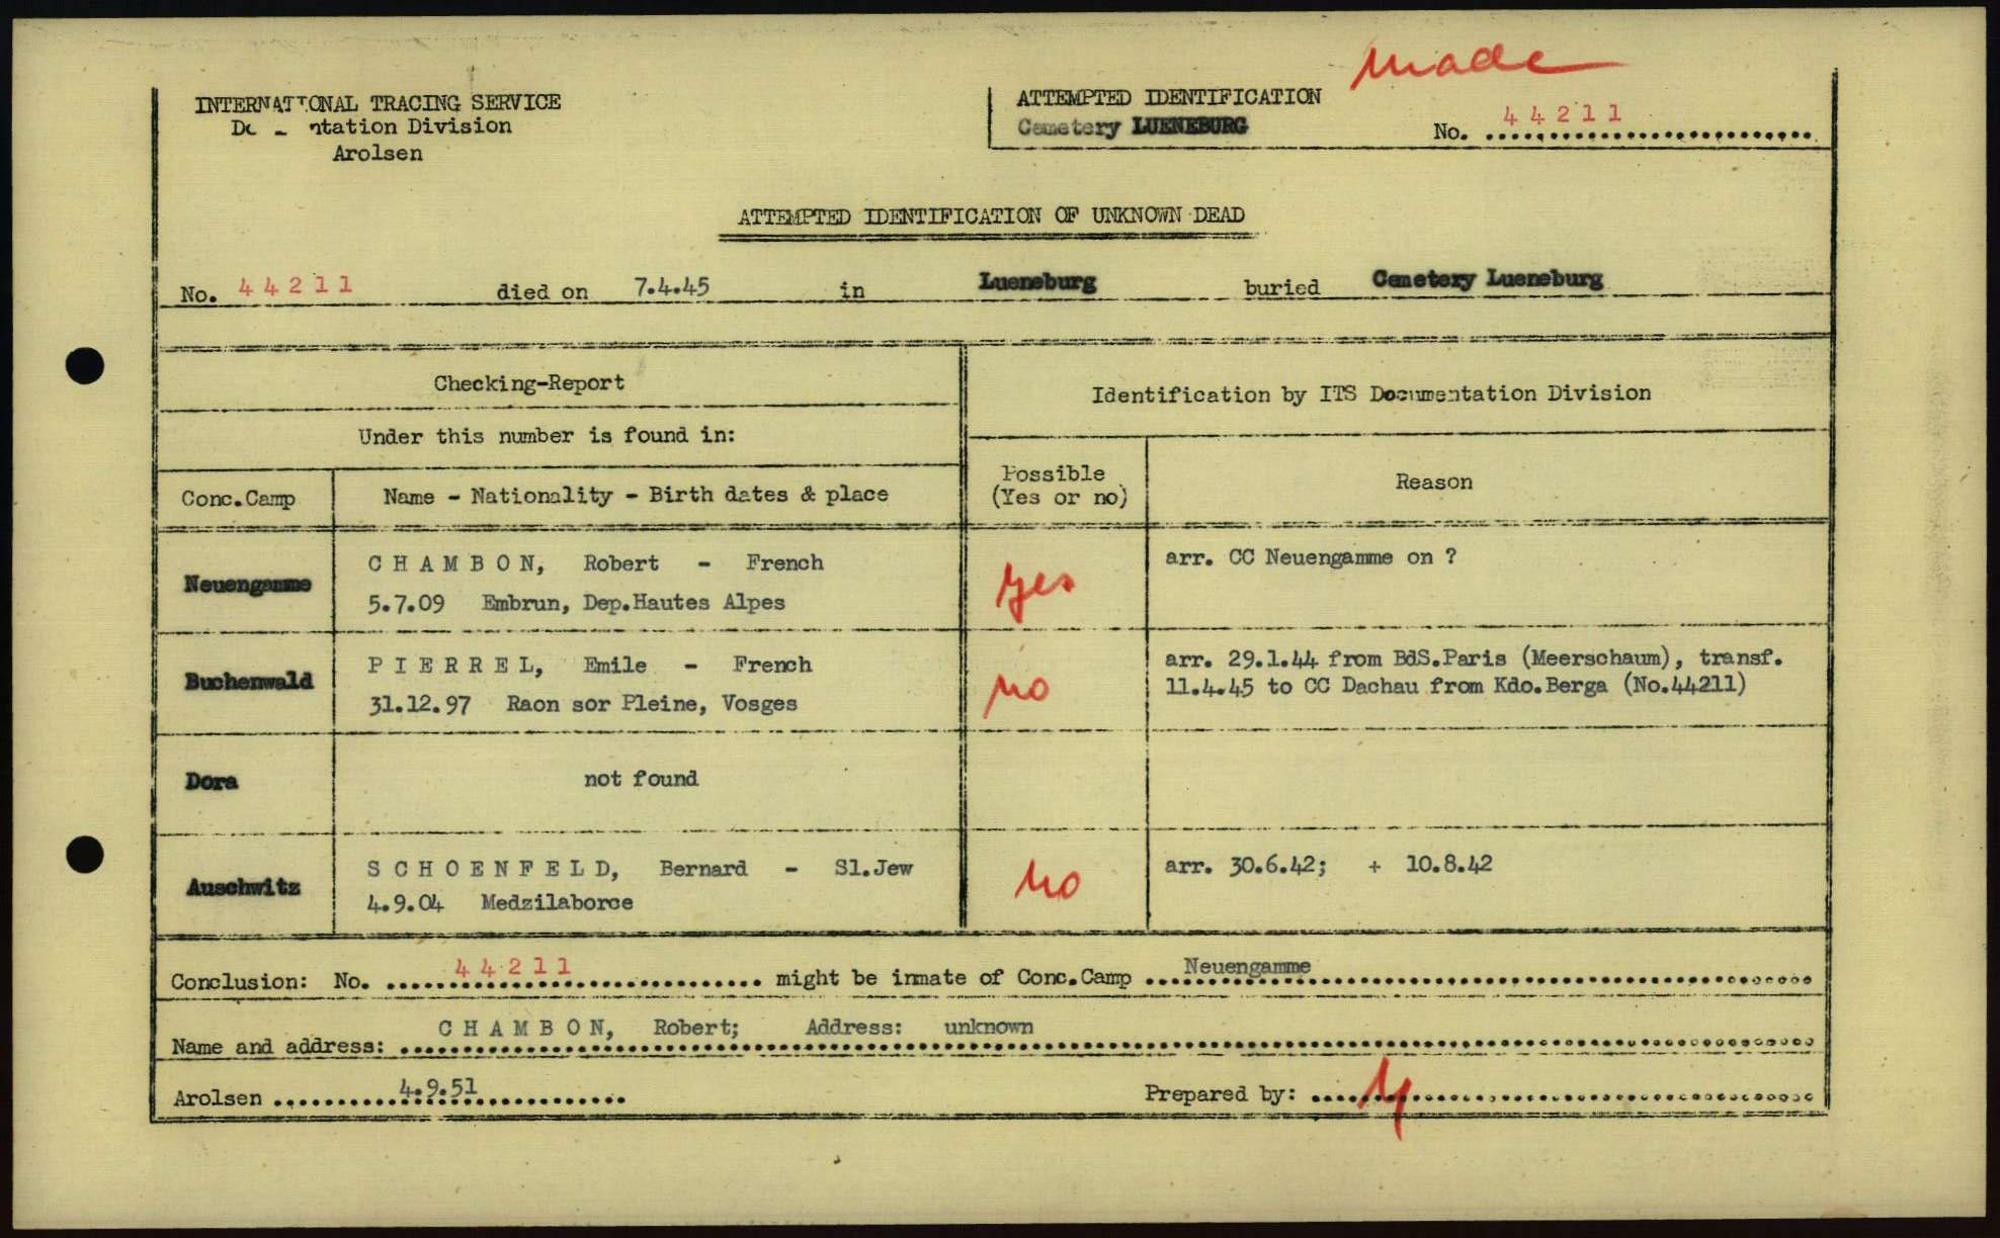 made
INTERNATIONAL TRACING SERVICE
ntation Division
Arolsen
ATTEMPTED IDENTIFICATION
Cemetery LUENEBURG
No. 44211
ATTEMPTED IDENTIFICATION OF UNKNOWN DEAD
No. 44211 died on 7.4.45 in Lueneburg buried Cemetery Lueneburg
Checking-Report
Under this number is found in:
Identification by ITS Documentation Division
Conc.Camp
Name - Nationality - Birth dates & place
Possible
(Yes or no)
Reason
Neuengamme
C H A M B O N, Robert - French
5.7.09 Embrun, Dep.Hautes Alpes
yes
arr. CC Neuengamme on ?
Buchenwald
P I E R R E L, Emile - French
31.12.97 Raon sor Pleine, Vosges
no
arr. 29.1.44 from BdS.Paris (Meerschaum), transf.
11.4.45 to CC Dachau from Kdo.Berga (No.44211)
Dora
not found
Auschwitz
S C H O E N F E L D, Bernard - Sl.Jew
4.9.04 Medzilaborce
no
arr. 30.6.42; + 10.8.42
Conclusion: No. 44211 might be inmate of Conc.Camp Neuengamme
Name and address: C H A M B O N, Robert; Address: unknown
Arolsen 4.9.51
Prepared by: